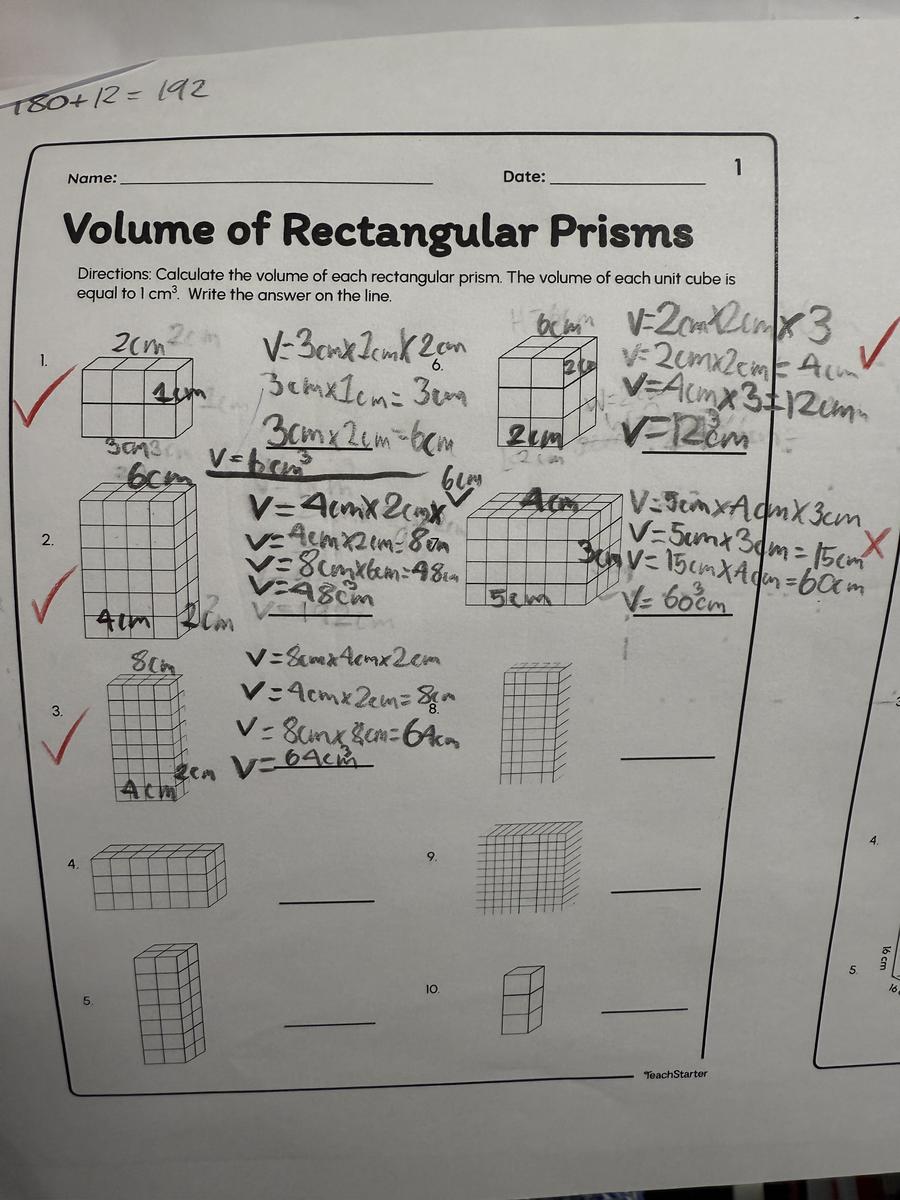 180+12= 192
1
Name: Date:
Volume of Rectangular Prisms
Directions: Calculate the volume of each rectangular prism. The volume of each unit cube is
equal to 1 cm³. Write the answer on the line.
1.
2cm 2cm
1cm
3cm
V=3cmx1cmx2cm
3cmx1cm= 3cm
3cmx2cm=6cm
V=6cm³
6.
6cm
2cm
2cm
V=2cmx2cmx3
V=2cmx2cm=4cm
V=4cmx3=12cm
V=12cm³
2.
6cm
4cm 2cm
V=4cmx2cmx 6cm
V=4cmx2cm=8cm
V=8cmx6cm=48cm
V=48cm³
7.
4cm
3cm
5cm
V=5cmx4cmx3cm
V=5cmx3cm=15cm
V=15cmx4cm=60cm
V= 60cm³
3.
8cm
2cm
4cm
V=8cmx4cmx2cm
V=4cmx2cm=8cm
V=8cmx8cm=64cm
V=64cm³
8.
4.
9.
5.
10.
TeachStarter
4.
5.
16 cm
16